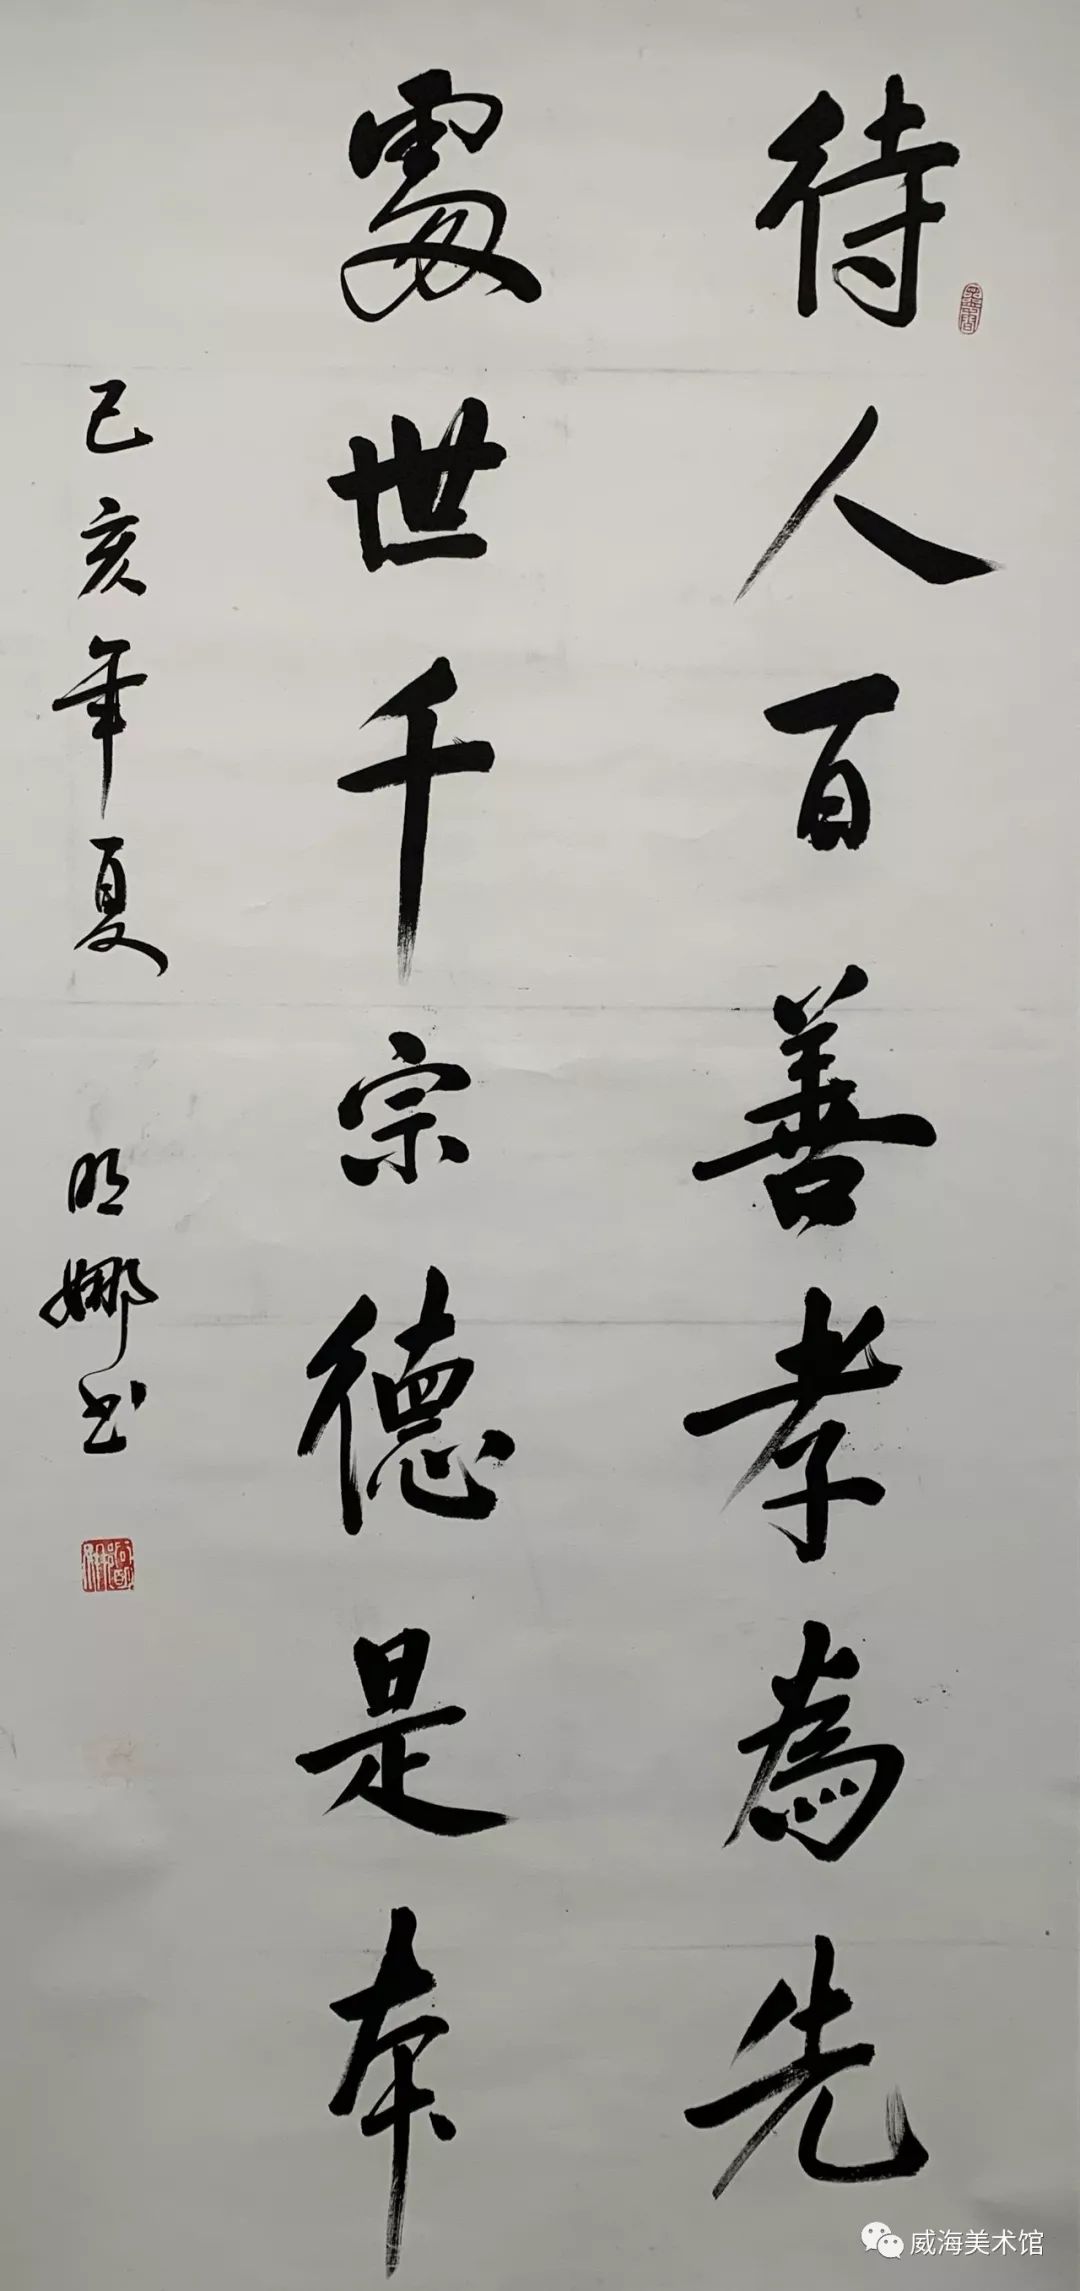 待人百善孝為先
處世千宗德是本
己亥年夏 明娜书
威海美术馆